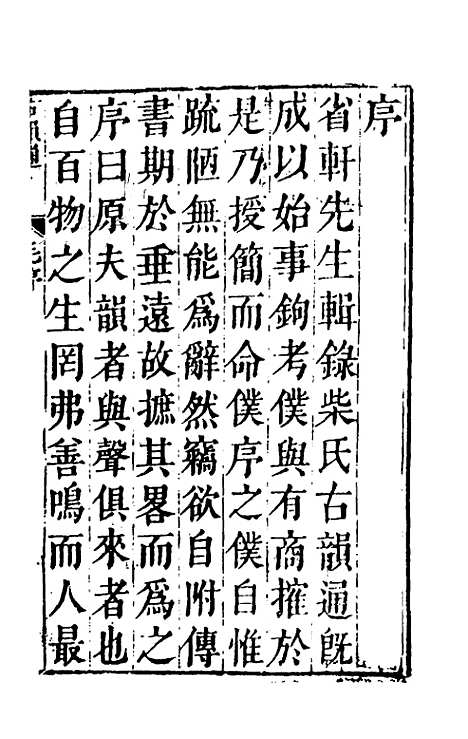 序
省軒先生輯錄柴氏古韻通旣
成以始事鉤考僕與有商搉於
是乃授簡而命僕序之僕自惟
疏陋無能爲辭然竊欲自附傳
書期於垂遠故摭其畧而爲之
序曰原夫韻者與聲俱來者也
自百物之生罔弗善鳴而人最